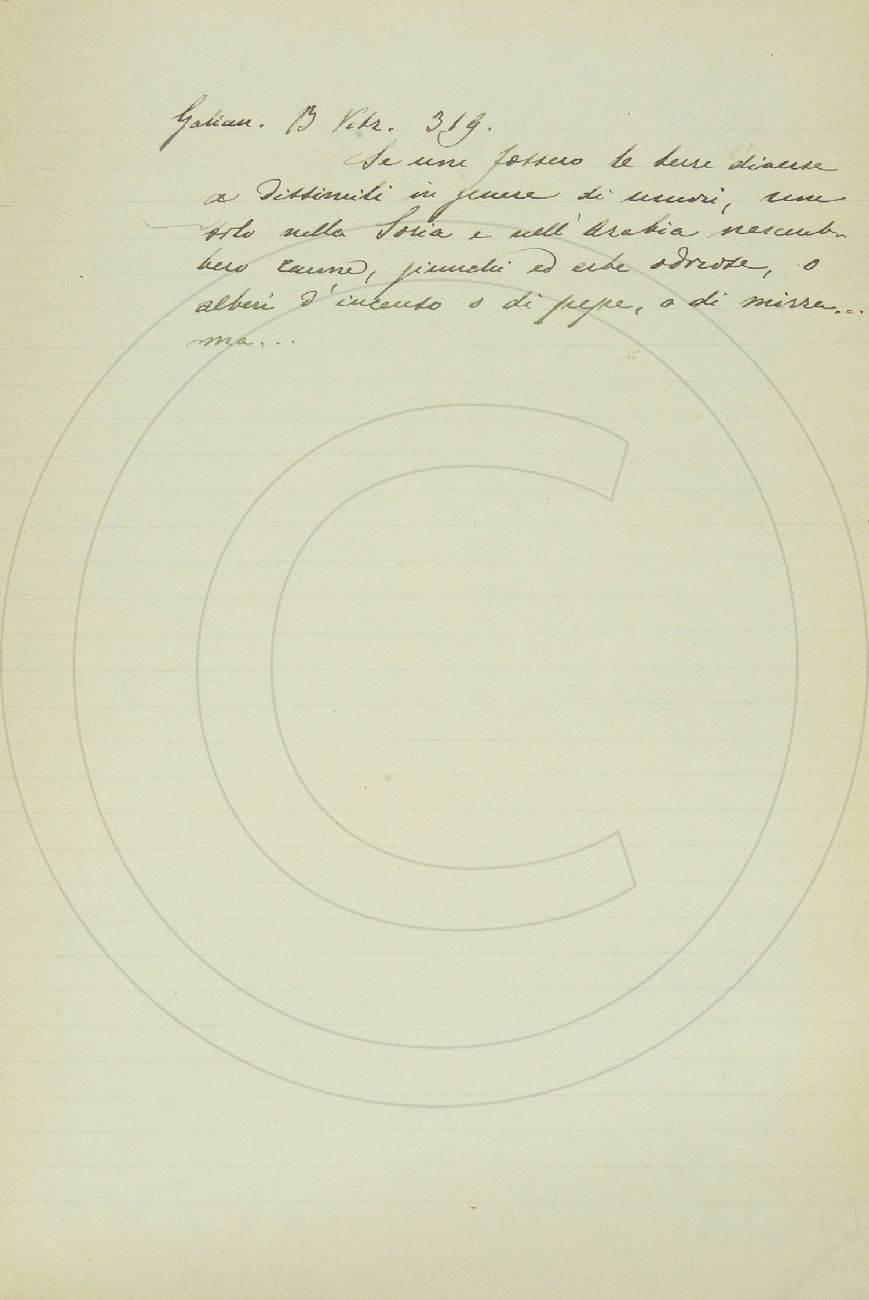 Galian. B Vitr. 319.
Se non fossero le terre diverse
e dissimili in genere di umori, non
solo nella Soria e nell'Arabia nascereb-
bero canne, giunchi ed erbe odorose, o
alberi d'incenso o di pepe, o di mirra...
ma...